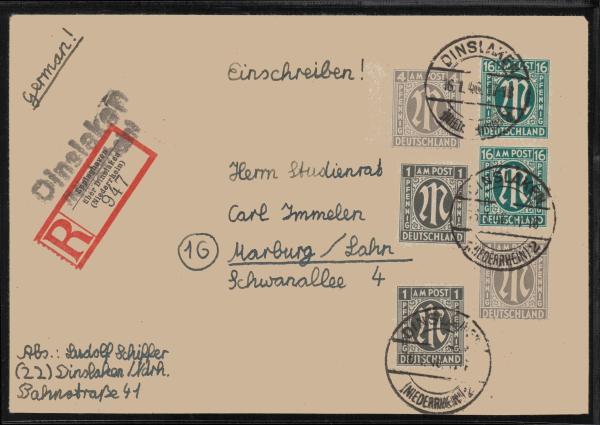 German!
Einschreiben!
Dinslaken
über Dinslaken
(Niederrhein)
947
R
Herrn Studienrat
Carl Immelen
16 Marburg/Lahn
Schwanallee 4
Abs.: Ludolf Schiffer
(22) Dinslaken/Ndrh.
Bahnstraße 41
4 AM POST 4
PFENNIG PFENNIG
DEUTSCHLAND
16 AM POST 16
PFENNIG PFENNIG
DEUTSCHLAND
DINSLAKEN
1 AM POST 1
PFENNIG PFENNIG
DEUTSCHLAND
16 AM POST 16
PFENNIG PFENNIG
DEUTSCHLAND
DINSLAKEN
(NIEDERRHEIN) 2
DEUTSCHLAND
1 AM POST 1
PFENNIG PFENNIG
DEUTSCHLAND
DINSLAKEN
(NIEDERRHEIN) 2